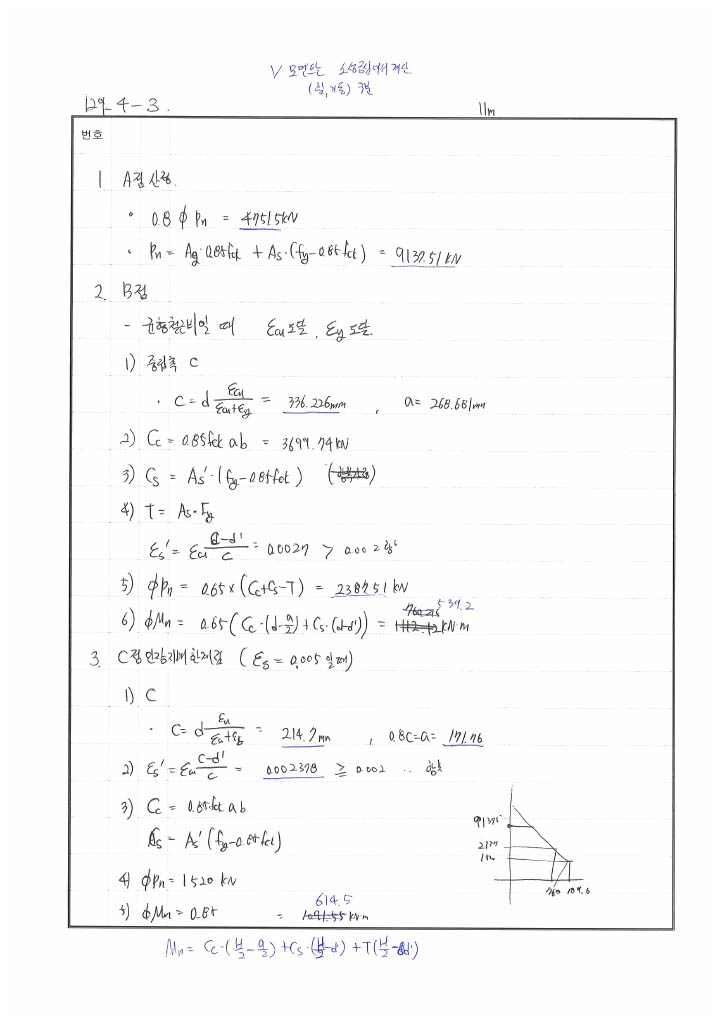 V 모멘트는 소성중심에서 계산.
(힘, 거동) 구분
129-4-3.
11m
번호
1 A점 산정.
• 0.8 φ Pn = 4751.5kN
• Pn = Ag·0.85fck + As·(fy-0.85fck) = 9137.51 kN
2. B점
- 균형철근비일 때 εcu 도달, εy 도달.
1) 중립축 C
• C = d εcu/(εcu+εy) = 336.226mm , a = 268.681mm
2) Cc = 0.85fck ab = 3699.74kN
3) Cs = As'·(fy-0.85fck)
4) T = As·fy
εs' = εcu (C-d')/C = 0.0027 > 0.002 항복
5) φPn = 0.65×(Cc+Cs-T) = 2387.51 kN
6) φMn = 0.65(Cc·(d-a/2)+Cs·(d-d')) = 539.2 kN·m
3. C점 인장지배한계점 (εs = 0.005 일때)
1) C
• C = d εu/(εu+εs) = 214.7mm , 0.8C=a= 171.76
2) εs' = εcu (C-d')/C = 0.002378 ≥ 0.002 ∴ 항복
3) Cc = 0.85fck ab
Cs = As'(fy-0.85fck)
4) φPn = 1520 kN
5) φMn = 0.85 = 614.5 kN·m
Mn = Cc·(H/2 - a/2) + Cs·(H/2-d') + T(H/2-d')
9137.5